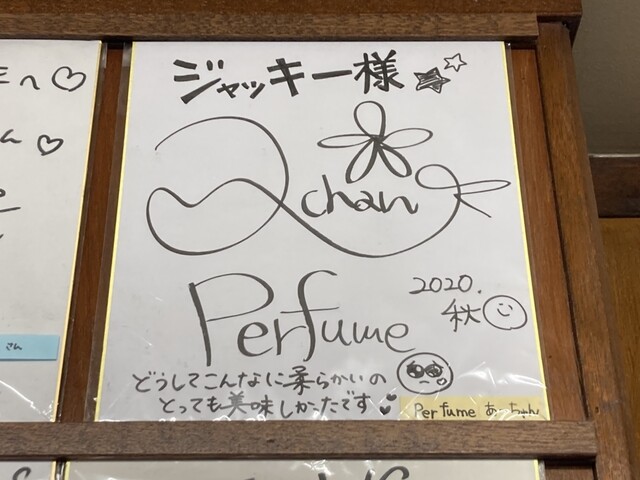 ジャッキー様
a chan
Perfume
2020.
秋
どうしてこんなに柔らかいの
とっても美味しかったです
Perfume あ～ちゃん
へ
さん